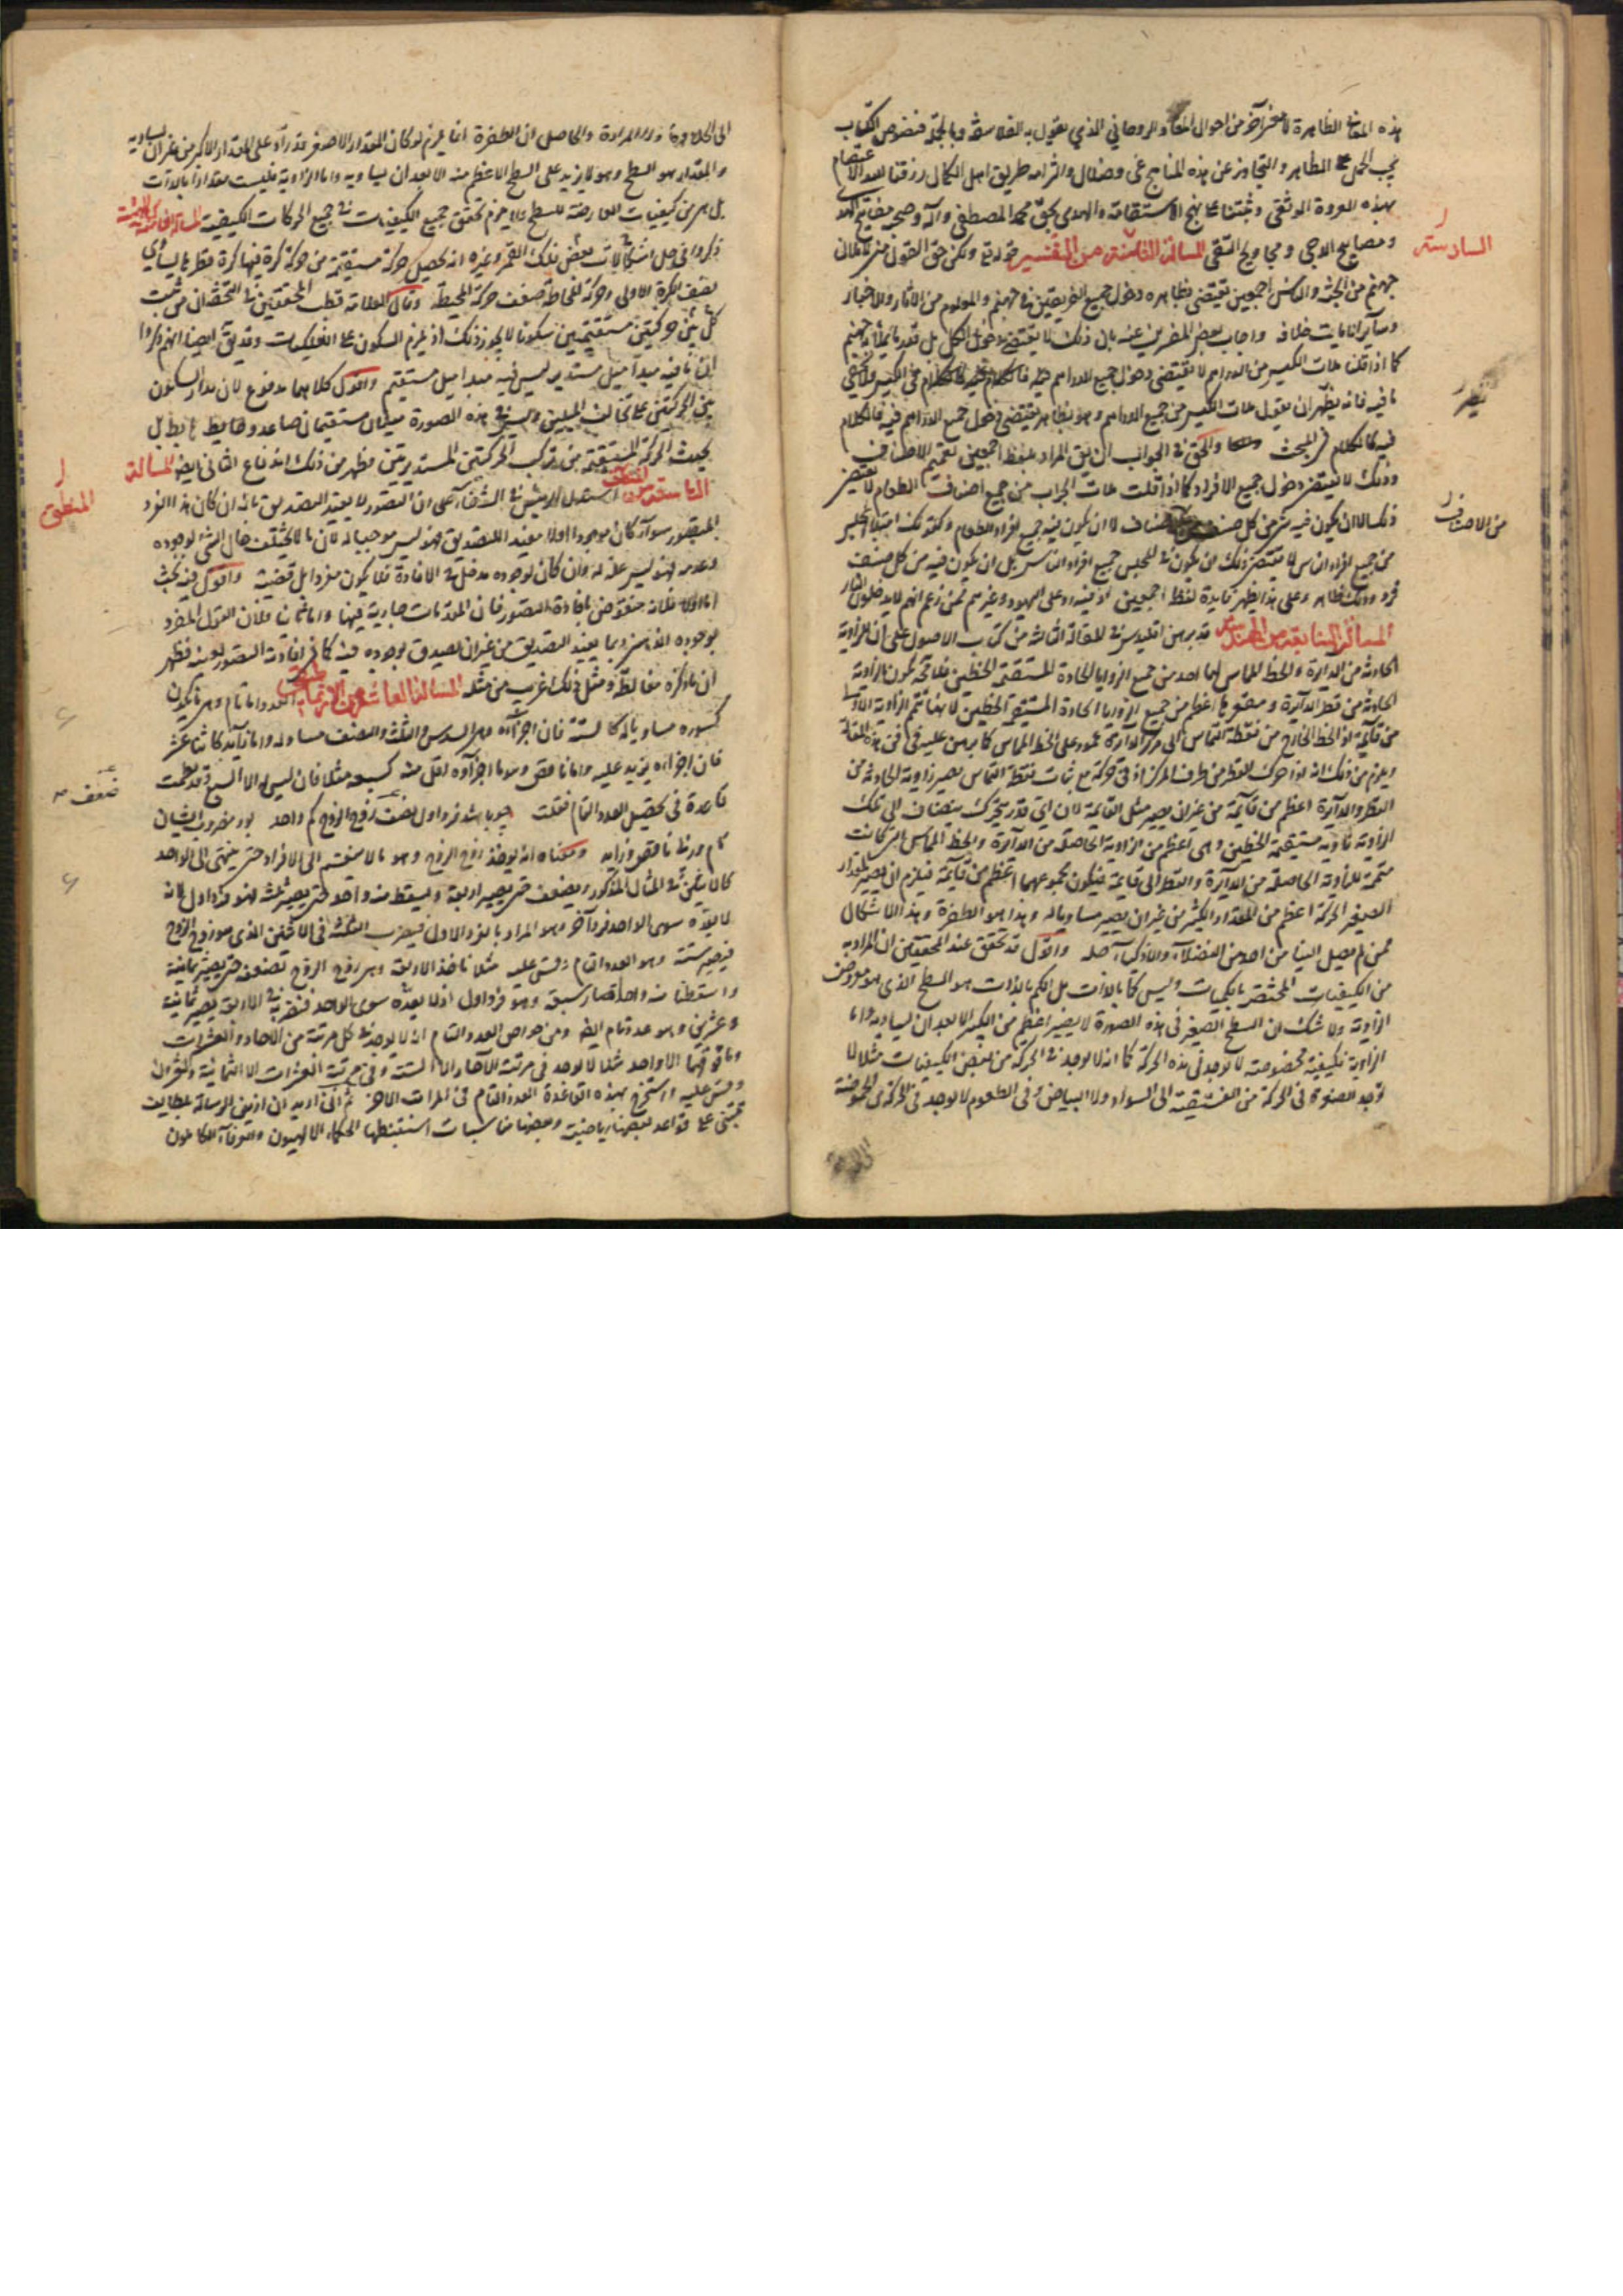 هذه المعاني الظاهرة لامر آخر من احوال المعاد الروحاني الذي يقول به الفلاسفة وبالجملة فنصوص الكتاب
يجب الحمل على الظاهر والتجاوز عن هذه المناهج غي وضلال والتزامه طريق اهل الكمال رزقنا الله الاعتصام
بهذه العروة الوثقى وثبتنا على نهج الاستقامة والهدى بحق محمد المصطفى وآله وصحبه مفاتيح الهدى
ومصابيح الدجى المسألة من التفسير قوله تعالى ولكن حق القول مني لاملان
السادسة
جهنم من الجنة والناس اجمعين يقتضي بظاهره دخول جميع الفريقين في جهنم والمعلوم من الآثار والاخبار
وسائر الآيات خلافه واجاب بعض المفسرين عنه بان ذلك لا يقتضي دخول الكل بل قدر ما يملأ جهنم
كما اذا قلنا ملات الكيس من الدراهم لا يقتضي دخول جميع الدراهم فيه
ما فيه فانه نظير ان يقول ملات الكيس من جميع الدراهم وهو بظاهره يقتضي دخول جميع الدراهم فيه فالكلام
فيه كالكلام في المبحث والحق في الجواب ان يقال المراد بلفظ اجمعين تعميم الاصناف
وذلك لا يقتضي دخول جميع الافراد كما اذا قلت ملات الجراب من جميع اصناف الطعام لا يقتضي
ذلك الا ان يكون فيه شيء من كل صنف من الاصناف لا ان يكون فيه جميع افراد الطعام وكقولك امتلأ المجلس
من الاصناف
من جميع افراد الناس لا يقتضي ذلك ان يكون في المجلس جميع افراد الناس بل ان يكون فيه من كل صنف
فرد وذلك ظاهر وعلى هذا يظهر فايدة لفظ اجمعين اذ فيه رد على اليهود وغيرهم ممن زعم انهم لا يدخلون النار
المسألة السابعة من الهندسة قد برهن اقليدس في المقالة الثالثة من كتاب الاصول على ان الزاوية
الحادثة من الدايرة والخط المماس لها احد من جميع الزوايا الحادة المستقيمة الخطين فلا محة تكون الزاوية
الحادثة من قطر الدائرة ومقعرها اعظم من جميع الزوايا الحادة المستقيمة الخطين لانها تتم الزاوية الاولى
من قائمة اذ الخط الخارج من نقطة التماس الى مركز الدائرة عمود على الخط المماس كما برهن عليه في هذه المقالة
ويلزم من ذلك انه اذا حرك القطر من طرف المركز ادنى حركة مع ثبات نقطة التماس يصير زاوية الحادثة من
القطر والدائرة اعظم من قائمة من غير ان يصير مثل القائمة لان اي قدر يتحرك ينضاف الى تلك
الزاوية زاوية مستقيمة الخطين وهي اعظم من الزاوية الحاصلة من الدائرة والخط المماس التي كانت
متممة للزاوية الحاصلة من الدايرة والقطر الى قايمة فيكون مجموعهما اعظم من قائمة فيلزم ان يصير المقدار
الصغير بالحركة اعظم من المقدار الكبير من غير ان يصير مساويا له وهذا هو الطفرة وهذا الاشكال
مما لم يصل الينا من احد من الفضلاء والاذكياء حله واقول قد تحقق عند المحققين ان الزاوية
من الكيفيات المختصة بالكميات وليس كما بالذات بل الكم بالذات هو السطح الذي هو معروض
الزاوية ولا شك ان السطح الصغير في هذه الصورة لا يصير اعظم من الكبير الا بعد ان يساويه واما
الزاوية فكيفية مخصوصة لا توجد في هذه الحركة كما انه لا يوجد في الحركة من بعض الكيفيات مثلا لا
توجد الصفرة في الحركة من الفستقية الى السواد ولا البياض وفي الطعوم لا يوجد في الحركة من الحموضة
الى الحلاوة المرارة والحاصل ان الطفرة انما يلزم لو كان المقدار الاصغر قد زاد على المقدار الاكبر من غير ان يساويه
والمقدار هو السطح وهو لا يزيد على السطح الاعظم منه الا بعد ان يساويه واما الزاوية فليست مقدارا بالذات
بل هي من كيفيات العارضة للسطح ولا يلزم تحقق جميع الكيفيات في جميع الحركات الكيفية المسألة الثامنة من الهيئة
ذكروا في حل اشكالات بعض فلك القمر وغيره انه يحصل حركة مستقيمة من حركة كرة فيها كرة قطرها يساوي
نصف قطر الكرة الاولى وحركة المحاطة ضعف حركة المحيطة وقال العلامة قطب المحققين في التحفة ان من يثبت
كل بين حركتين مستقيمتين سكونا لا يجوز ذلك اذ يلزم السكون على الفلكيات وقد يق ايضا انهم ذكروا
ان ما فيه مبدأ ميل مستدير ليس فيه مبدأ ميل مستقيم واقول كلاهما مدفوع لان مدار السكون
بين الحركتين على تخالف الميلين وليس في هذه الصورة ميلان مستقيمان صاعد وهابط بل
يحدث الحركة المستقيمة من تركب الحركتين المستديرتين فظهر من ذلك اندفاع الثاني ايضا المسألة
التاسعة من المنطق استدل الرئيس في الشفاء على ان التصور لا يفيد التصديق بانه ان كان هذا المفرد
المنطق
المتصور سواء كان موجودا اولا مفيد التصديق فهو ليس موجبا له لان ما لا يختلف حال الشيء لوجوده
وعدمه فهو ليس علة له وان كان لوجوده مدخل في الافادة فلا يكون مفردا بل قضية واقول فيه بحث
اما اولا فلانه منقوض بافادة التصور فان المقدمات جارية فيها واما ثانيا فلان القول المفرد
بوجوده الذهني ربما يفيد التصديق من غير ان يصدق بوجوده فيه كما في افادته التصور بعينه فظهر
ان ما ذكره مغالطة ومثل ذلك غريب من مثله المسألة العاشرة من الارثماطيقي العدد اما تام وهو ما يكون
كسوره مساويا له كالستة فان اجزاءه وهي السدس والثلث والنصف مساو له واما زايد كاثنا عشر
فان اجزاءه يزيد عليه واما ناقص وهو ما اجزاؤه اقل منه كسبعة مثلا فان ليس له الا السبع وقد نظمت
قاعدة في تحصيل العدد التام فقلت چو باشد فرد اول ضعف زوج الزوج كم واحد بود مضروب ايشان
ضعف
تام ورنه ناقص وزايد ومعناه انه يؤخذ زوج الزوج وهو ما لا ينقسم الى الافراد حتى ينتهي الى الواحد
كالاثنين في المثال المذكور ويضعف حتى يصير اربعة ويسقط منه واحد حتى يصير ثلثة فهو فرد اول لانه
لا يعده سوى الواحد فرد آخر وهو المراد بالفرد الاول فيضرب الثلثة في الاثنين الذي هو زوج الزوج
فيصير ستة وهو العدد التام وقس عليه مثلا ناخذ الاربعة وهي زوج الزوج نضعفه حتى يصير ثمانية
واسقطنا منه واحدا فصار سبعة وهو فرد اول اذ لا يعده سوى الواحد فنضربه في الاربعة يصير ثمانية
وعشرين وهو عدد تام ايضا ومن خواص العدد التام انه لا يوجد في كل مرتبة من الآحاد والعشرات
وما فوقهما الا واحد مثلا لا يوجد في مرتبة الآحاد الا الستة وفي مرتبة العشرات الا الثمانية والعشرون
وقس عليه واستخرج بهذه القاعدة العدد التام في المراتب الاخر ثم اني اريد ان ازين الرسالة بمطالب
تبتنى على قواعد بعضها رياضية وبعضها مناسبات استنبطها الحكماء الالهيون والعرفاء الكاملون